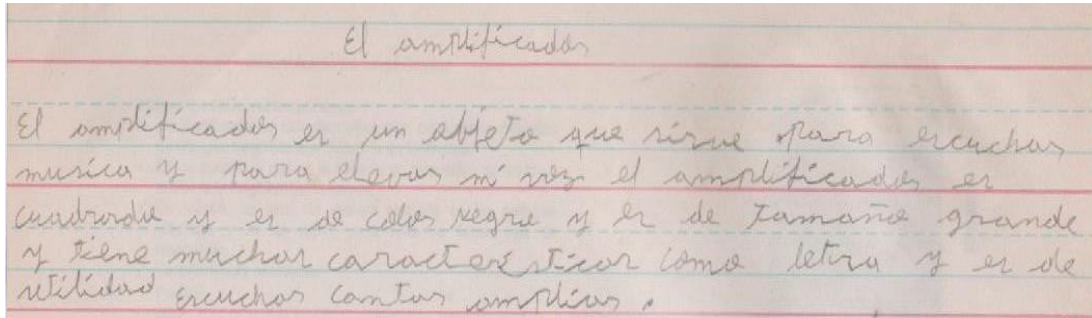 El amplificador
El amplificador es un objeto que sirve para escuchar
musica y para elevar mi voz el amplificador es
cuadrado y es de color negro y es de tamaño grande
y tiene muchas características como letra y es de
utilidad escuchar cantar ampliar.